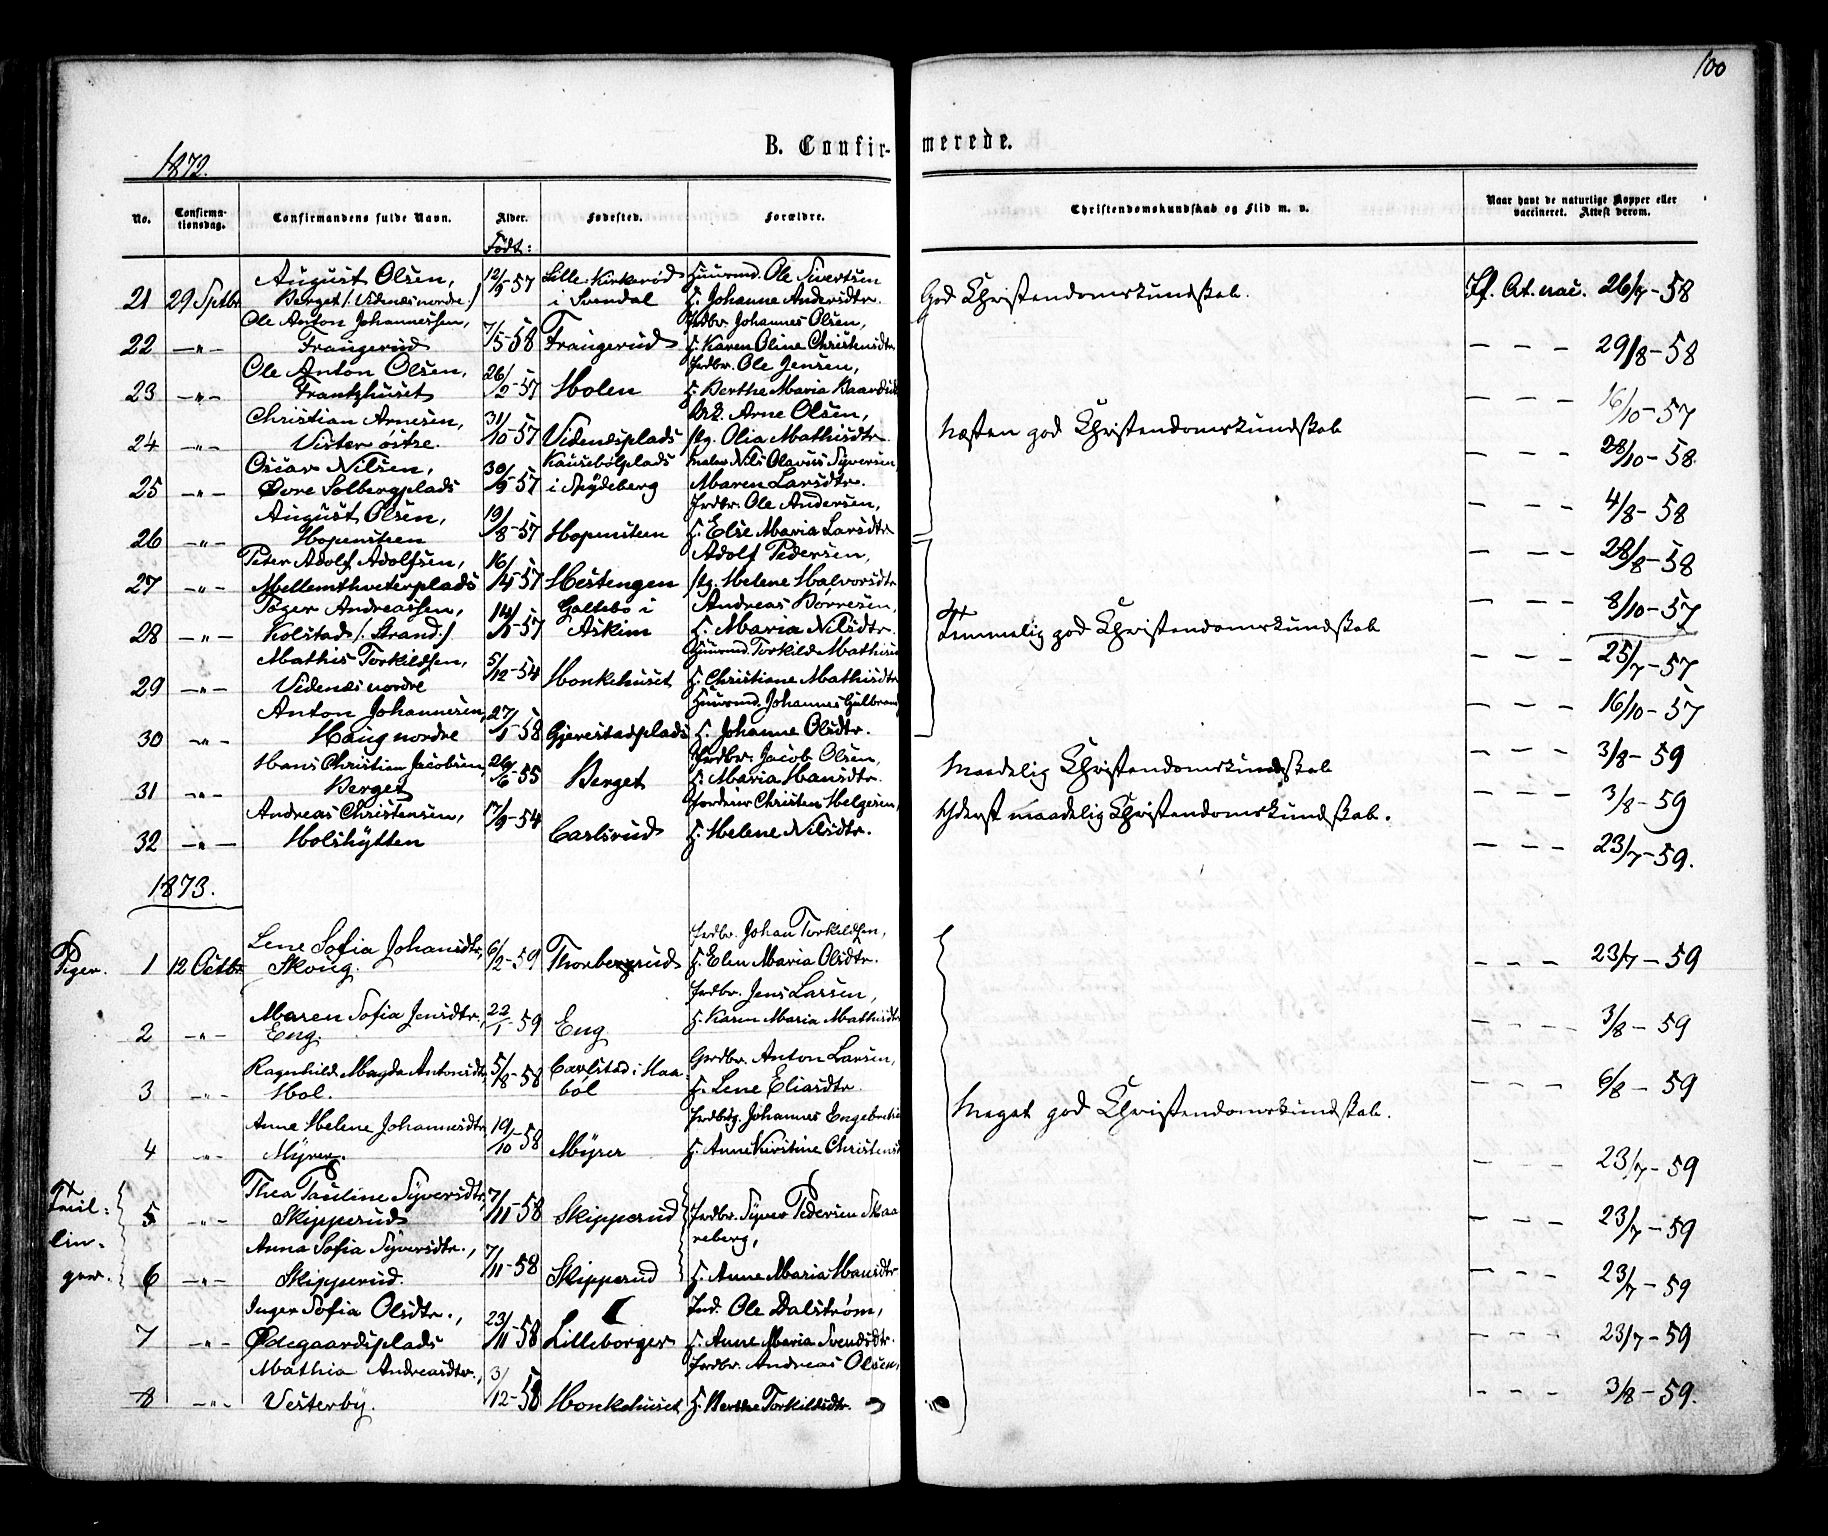 100
B. Confirmerede.
1872.
No. Confirmationsdag. Confirmandens fulde Navn. Alder. Fødested. Forældre. Christendomskundskab og Flid m. v. Naar havt de naturlige Kopper eller vaccineret. Attest derom.
Født:
August Olsen, 12/9-57 Lille Kirkerød Huusmd. Ole Sivertsen
21 29 Septbr Berget /: Videnæs nordre :/ i Svendal H. Johanne Andersdtr. God Christendomskundskab. If. At. vac. 26/7-58
Ole Anton Johannessen, 7/5-58 Grdbr. Johannes Olsen,
22 -"- Frangerud Frangerud H. Karen Oline Christensdtr. - - - 29/8-58
Ole Anton Olsen, 26/2-57 Grdbr. Ole Jensen,
23 -"- Frantzhuset Holen H. Berthe Maria Baardsdtr - - - 16/10-57
Christian Arnesen, 31/10-57 Arne Olsen,
24 -"- Vister østre. Videnæsplads Ug. Olia Mathisdtr. Næsten god Christendomskundskab - - - 28/10-58.
Oscar Nilsen, 30/9-57 Kausebølplads Maler Nils Olavus Syversen,
25 -"- Øvre Solbergplads i Spydeberg Maren Larsdtr. - - - 4/8-58
August Olsen, 19/8-57 Grdbr. Ole Andersen,
26 -"- Hopensteen Hopensteen H. Else Maria Larsdtr - - - 28/8-58
Peter Adolf Adolfsen, 16/4-57 Adolf Pedersen,
27 -"- Mellemthveterplads Hestengen Ug. Helene Halvorsdtr - - - 8/10-57
Tøger Andreassen, 14/1-57 Galtebo i Andreas Børresen,
28 -"- Kolstad /: Strand :/ Askim H. Maria Nilsdtr. Temmelig god Christendomskundskab - - - 25/7-57
Mathis Torkildsen, 5/12-54 Huusmd. Torkild Mathisen
29 -"- Videnæs nordre Honkehuset H. Christiane Mathisdtr - - - 16/10-57
Anton Johannesen, 27/1-58 Huusmd. Johannes Gulbrands
30 -"- Haug nordre Gjerestadplads H. Johanne Olsdtr. - - - 3/8-59
Hans Christian Jacobsen, 26/6-55 Grdbr. Jacob Olsen,
31 -"- Berget Berget H. Maria Hansdtr. Maadelig Christendomskundskab - - - 3/8-59
Andreas Christensen, 17/9-54 Christen Helgesen,
32 -"- Holshytten Carlsrud H. Helene Nilsdtr. Yderst maadelig Christendomskundskab. - - - 23/7-59.
1873.
Lene Sofia Johansdtr, 6/2-59 Grdbr. Johan Torkildsen,
Piger. 1 12 Octbr Skoug. Thorbergrud H. Elen Maria Olsdtr. - - - 23/7-59
Maren Sofia Jensdtr., 22/1-59 Grdbr. Jens Larsen,
2 -"- Eng. Eng. H. Karen Maria Mathisdtr - - - 3/8-59
Ragnhild Magda Antonsdtr, 5/8-58 Carlstad i Haa- Grdbr. Anton Larsen,
3 -"- Hol. bøl H. Lene Eliasdtr. - - - 6/8-59
Anne Helene Johannesdtr, 19/10-58 Johannes Engebretsen
4 -"- Myrer. Myrer H. Anne Kirstine Christensd Meget god Christendomskundskab. 23/7-59
Thea Pauline Syversdtr, 7/11-58
Tvil- 5 -"- Skipperud Skipperud Grdbr. Syver Pedersen Skaa - - - 23/7-59
lin- Anna Sofia Syversdtr., 7/11-58 reberg,
ger. 6 -"- Skipperud. Skipperud H. Anne Maria Hansdtr - - - 23/7-59
Inger Sofia Olsdtr., 23/11-58 Ind. Ole Dalstrøm,
7 -"- Ødegaardsplads Lilleborger H. Anne Maria Svendsdtr. - - - 23/7-59
Mathia Andreasdtr., 3/12-58 Grdbr. Andreas Olsen,
8 -"- Vesterby. Honkehuset H. Berthe Torkildsdtr. - - - 3/8-59.